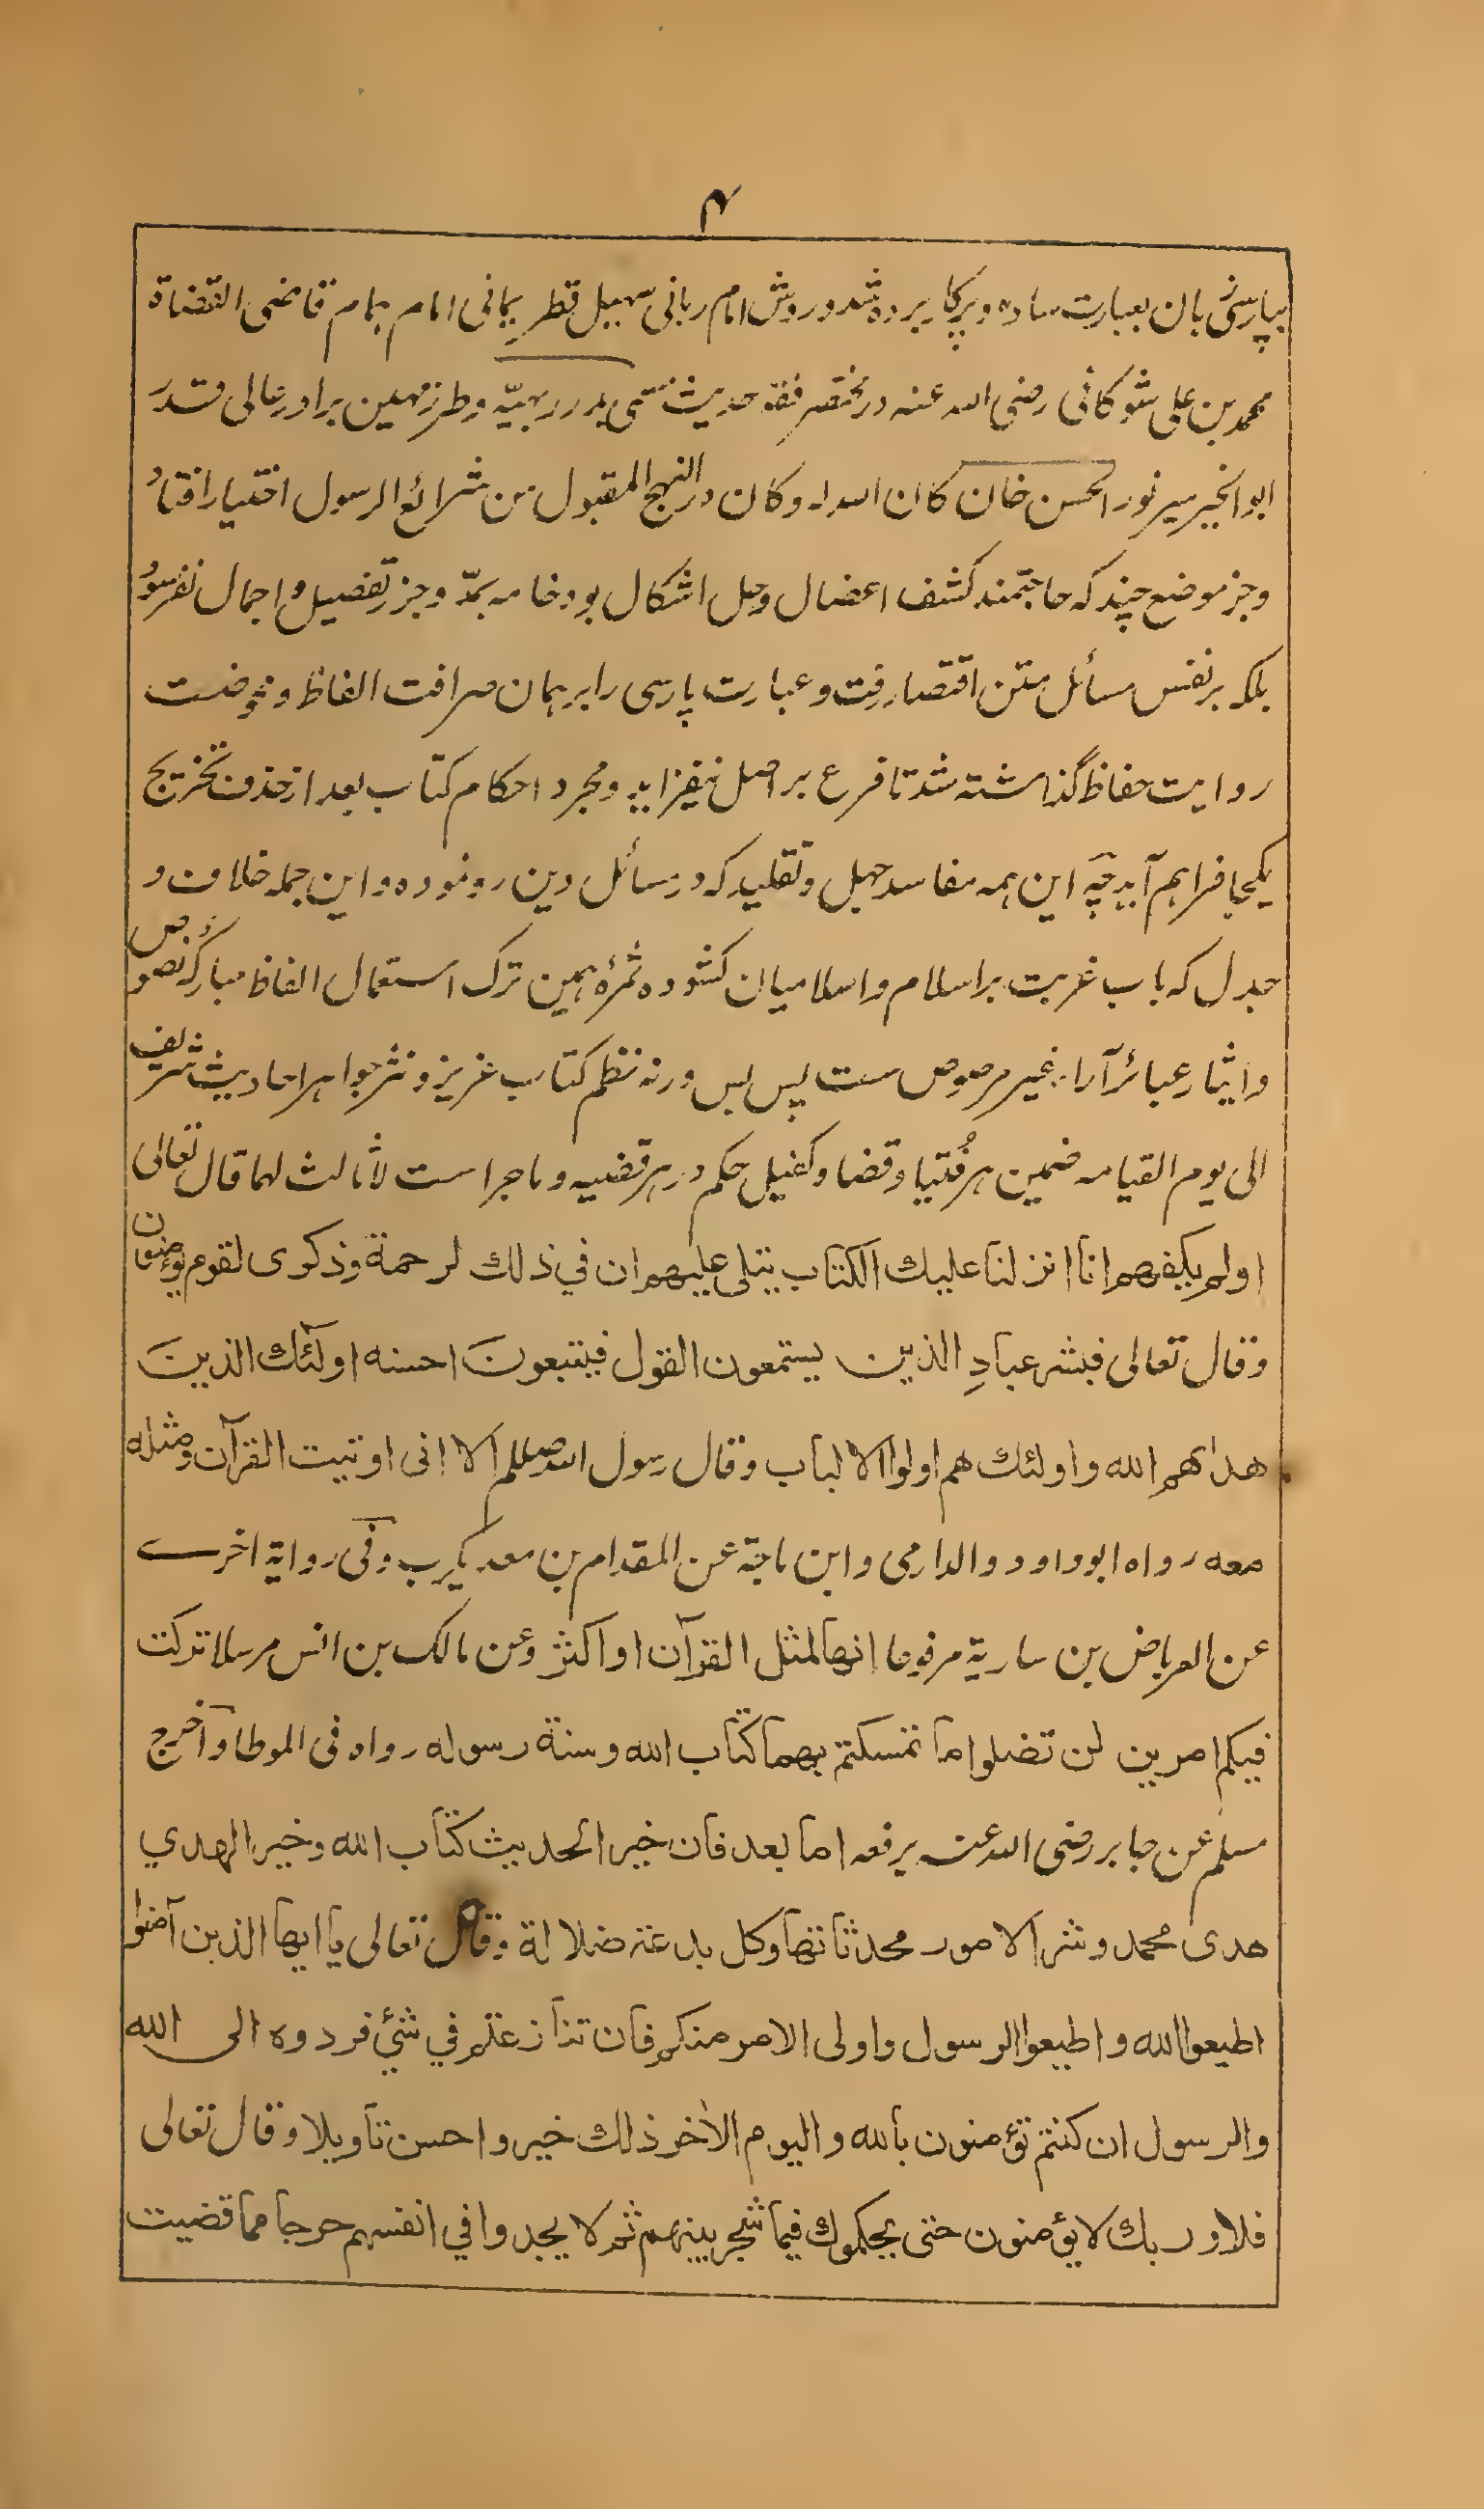 ۴
بپارسی زبان بعبارت ساده و پرکار برده شد و روش امام ربانی سهیل قطر یمانی امام همام قاضی القضاة
محمد بن علی شوکانی رضی الله عنه در مختصر فقه حدیث مسمی بدرر بهیّه و طرز مهین برادر عالی قدر
ابو الخیر میر نور الحسن خان کان الله له و کان در النهج المقبول من شرائع الرسول اختیار افتاد
و جز موضع چند که حاجتمند کشف اعضال و حل اشکال بود خامه بمدّ و جزر تفصیل و اجمال نفرسود
بلکه بر نفس مسائل متن اقتصار رفت و عبارت پارسی را بر همان صرافت الفاظ و محوضت
روایت حفاظ گذاشته شد تا فرع بر اصل نیفزاید و مجرد احکام کتاب بعد از حذف تخریج
یکجا فراهم آید چه این همه مفاسد جهل و تقلید که در مسائل دین رو نموده و این جمله خلاف و
جدل که باب غربت بر اسلام و اسلامیان کشوده ثمرهٔ همین ترک استعمال الفاظ مبارکهٔ نصوص
و ایثار عبائر آراء غیر مرصوص ست پس بس ورنه نظم کتاب عزیز و نثر جواهر احادیث شریف
الی یوم القیامه ضمین هر فُتیا و قضا و کفیل حکم در هر قضیه و ماجراست لا ثالث لهما قال تعالی
اولم یکفهم انا انزلنا علیك الکتاب یتلی علیهم ان في ذلك لرحمة وذکری لقوم یؤمنون
وقال تعالی فبشر عبادِ الذین یستمعون القول فیتبعونَ احسنه اولٓئك الذینَ
هداهم الله واولئك هم اولوا الالباب وقال رسول الله صللم الا انی اوتیت القرآن ومثله
معه رواه ابوداود والدارمی وابن ماجة عن المقدام بن معدیکرب وفی روایة اخرے
عن العرباض بن ساریة مرفوعا انها لمثل القرآن او اکثر وعن مالک بن انس مرسلا ترکت
فیکم امرین لن تضلوا ما تمسکتم بهما کتاب الله وسنة رسوله رواه فی الموطا واخرج
مسلم عن جابر رضی الله عنه یرفعه اما بعد فان خیر الحدیث کتاب الله وخیر الهدي
هدی محمد وشر الامور محدثاتها وکل بدعة ضلالة وقال تعالی یا ایها الذین آمنوا
اطیعوا الله واطیعوا الرسول واولی الامر منکم فان تنازعتم في شئ فردوه الی الله
والرسول ان کنتم تؤمنون بالله والیوم الاٰخر ذلك خیر واحسن تاویلا وقال تعالی
فلا وربك لا یؤمنون حتی یحکموك فیما شجر بینهم ثم لا یجدوا في انفسهم حرجا مما قضیت